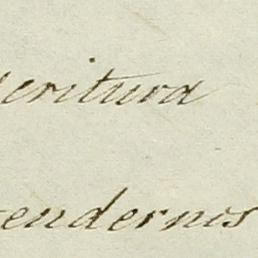 critura
endernos